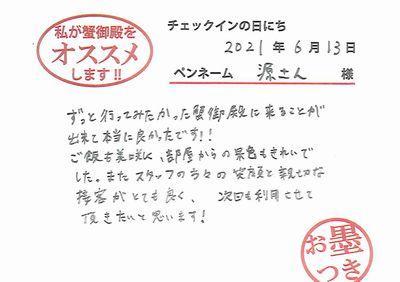 私が蟹御殿を
オススメ
します!!
チェックインの日にち
2021年6月13日
ペンネーム 源さん 様
ずっと行ってみたかった蟹御殿に来ることが
出来て本当に良かったです!!
ご飯も美味しく、部屋からの景色もきれいで
した。またスタッフの方々の笑顔と親切な
接客がとても良く、次回も利用させて
頂きたいと思います!
お墨
つき